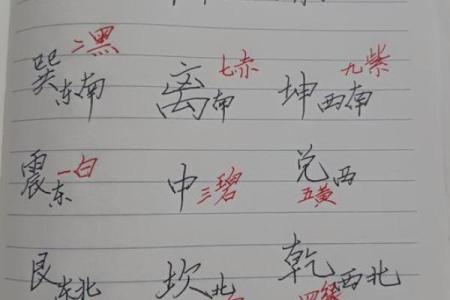 巽东南 二黑 离南 七赤 坤西南 九紫
震东 一白 中 三碧 兑西 五黄
艮东北 坎北 乾西北
四绿